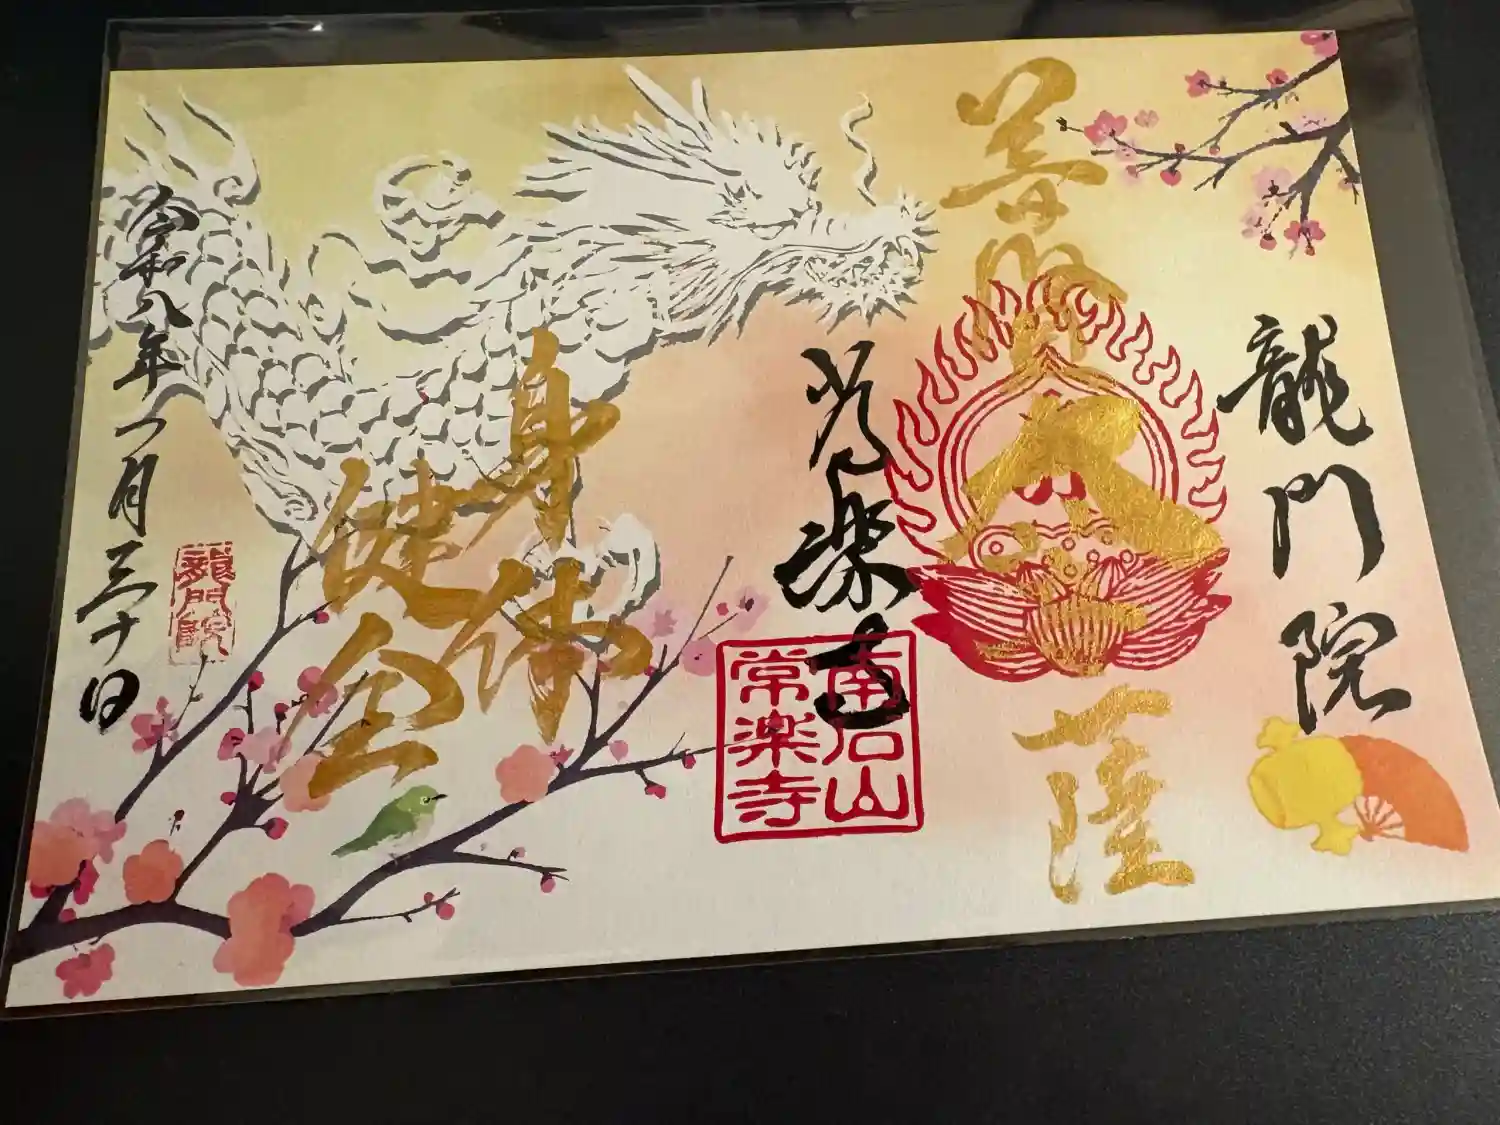 龍門院
薩
常楽寺
南石山
常楽寺
身体
健全
令和八年一月三十日
龍門院